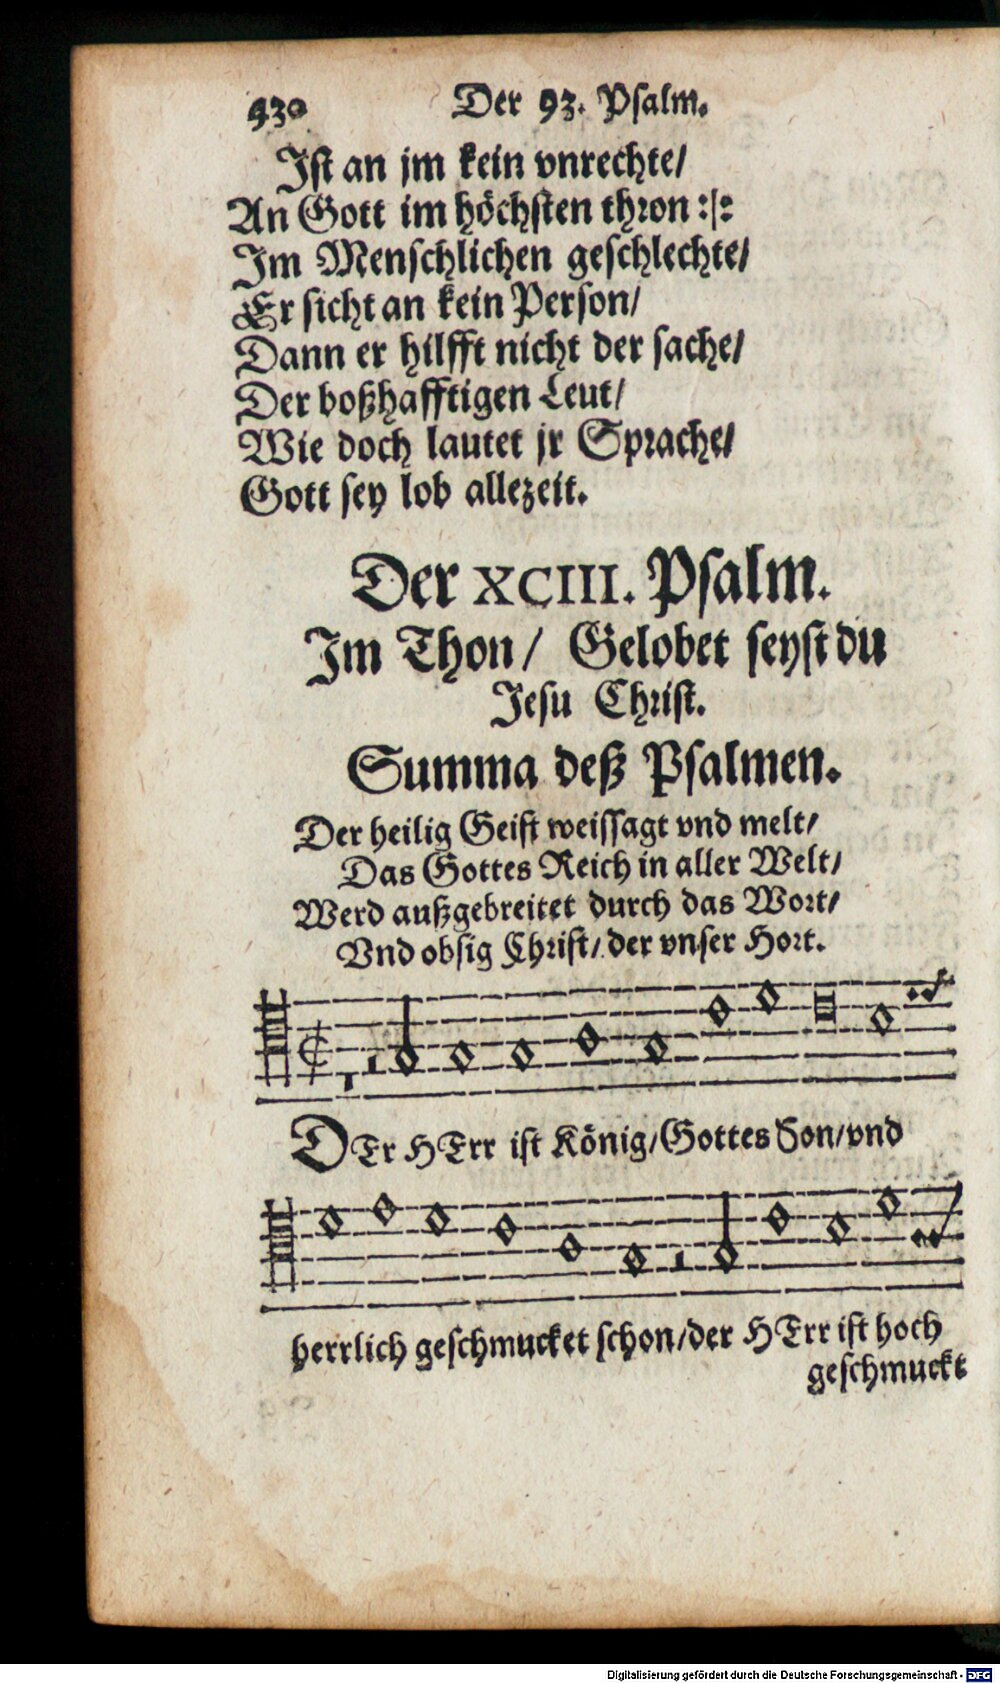 430 Der 93. Psalm.
Ist an jm kein vnrechte/
An Gott im höchsten thron :/:
Im Menschlichen geschlechte/
Er sicht an kein Person/
Dann er hilfft nicht der sache/
Der boßhafftigen Leut/
Wie doch lautet jr Sprache/
Gott sey lob allezeit.
Der XCIII. Psalm.
Im Thon/ Gelobet seyst du
Jesu Christ.
Summa deß Psalmen.
Der heilig Geist weissagt vnd melt/
Das Gottes Reich in aller Welt/
Werd außgebreitet durch das Wort/
Vnd obsig Christ/ der vnser Hort.
DEr HErr ist König/Gottes Son/vnd
herrlich geschmucket schon/der HErr ist hoch
geschmuckt
Digitalisierung gefördert durch die Deutsche Forschungsgemeinschaft - DFG